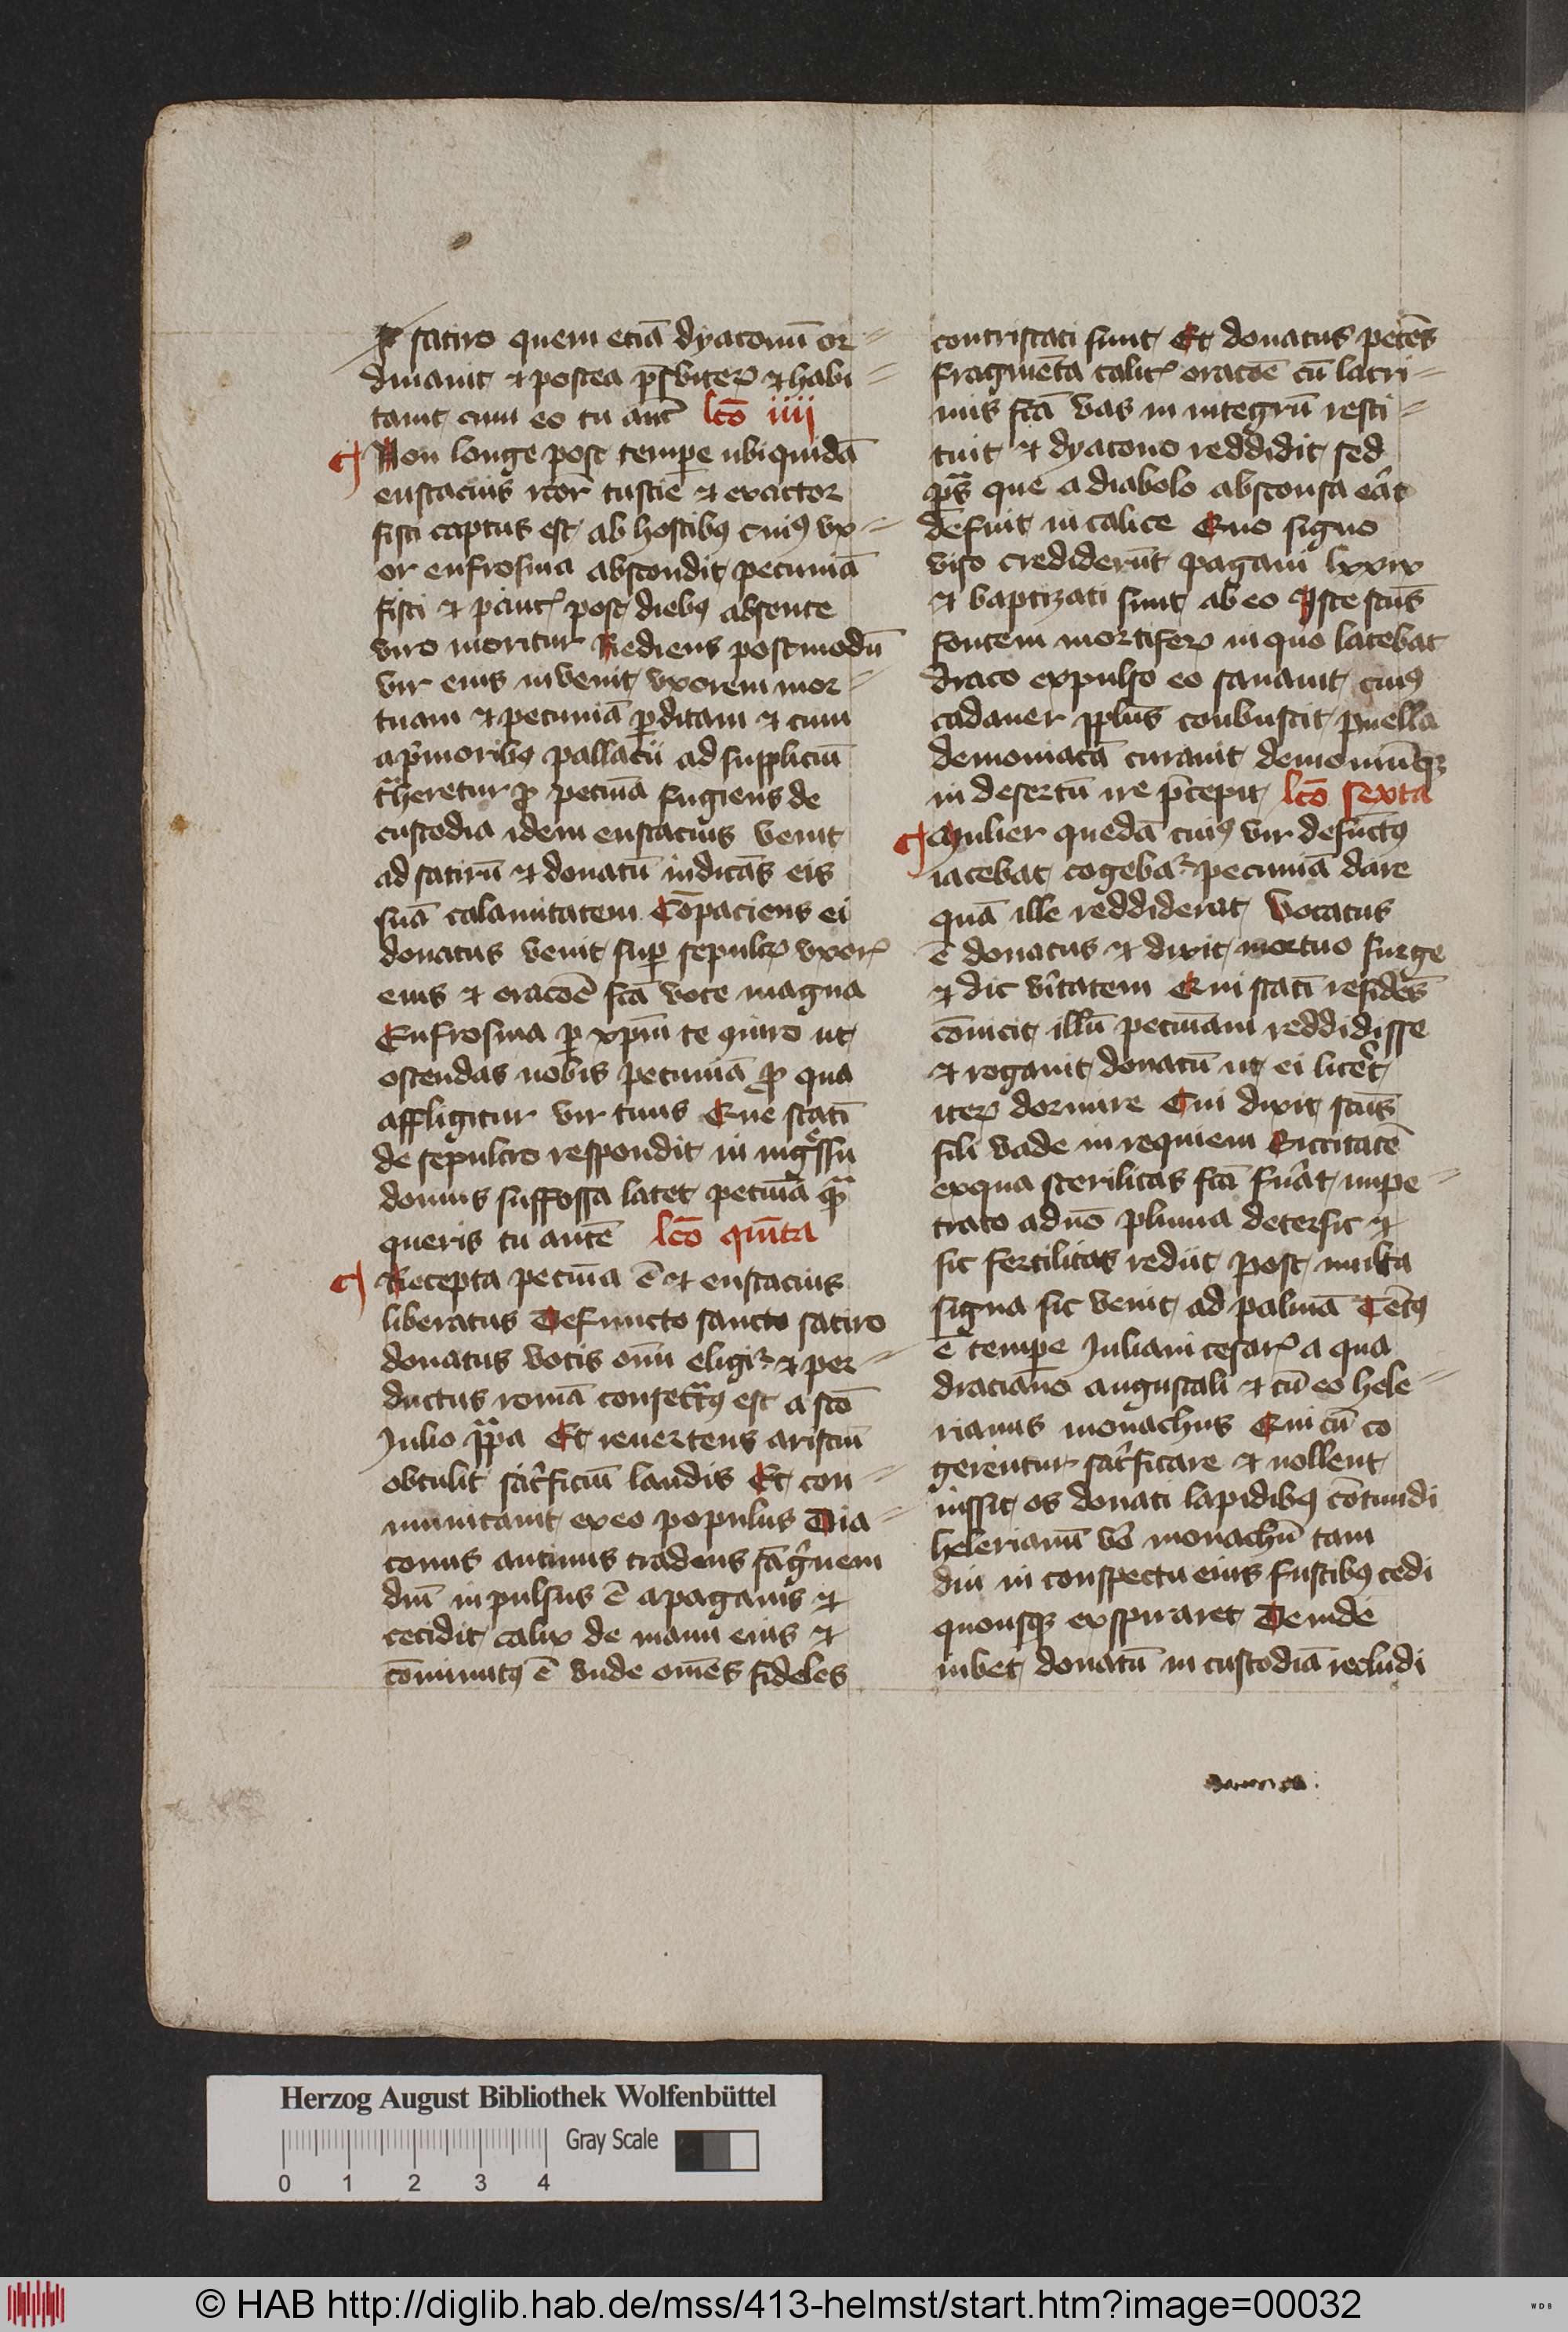 satiro quem etiā dyaconū or=
dinauit et postea p̄sbiterꝝ et habi=
tauit cum eo tu aut̄ lc̄o iiii
Non longe post tempe ubi quidā
eustacius rcor̄ tuscie et exactor
fisci captus est ab hostibꝫ cuiꝰ vx=
or eufrosina abscondit pecuniā
fisci et post diebꝫ absente
viro moritur Rediens postmodū
vir eius invenit vxorem mor=
tuam et pecuniā ꝑditam et cum
a p̄moribꝫ pallacii ad suppliciū
t̄heretur ꝓ pecūia fugiens de
custodia idem eustacius venit
ad satirū et donatū indicās eis
suā calamitatem Cōpaciens ei
donatus venit suꝑ sepulcꝝ vxorꝭ
eius et oracōē fc̄ā voce magna
Eufrosina ꝑ xp̄m te 9iuro ut
ostendas nobis pecuniā ꝓ qua
affligitur vir tuus Que statī
de sepulcro respondit in ingͤssu
domus suffossa latet pecūia qᵃ̄
queris tu autē lc̄o quīta
Recepta pecūia ē et eustacius
liberatus Defuncto sancto satiro
donatus votis om̄i eligiꝛ et per=
ductus romā consecᵃtꝰ est a sc̄o
Julio pᵃpa Et reuertens ariciū
obtulit sacͥficiū laudis Et con=
municauit ex eo populus Dia=
conus antimus tradens sāgͥnem
dn̄i inpulsus ē a paganis et
cecidit calix de manu eius et
cōminutꝰ ē vnde om̄es fideles
contristati sunt Et donatus petēs
fragmēta calicꝭ oracōē cū lacri=
mis fc̄ā vas in integrū resti=
tuit et dyacono reddidit sed
pᵃs que a diabolo absconsa eᵃt
defuit in calice Quo signo
viso crediderūt pagani lxxix
et baptizati sunt ab eo Iste sc̄us
fontem mortiferꝝ in quo latebat
draco expulso eo sanauit cuiꝰ
cadauer pp̄lus conbuscit puella
demoniacā curauit demoniūqꝫ
in desertū ire p̄cepit lc̄o sexta
Mulier quedā cuiꝰ vir defūctꝰ
iacebat cogebaꝛ pecuniā dare
quā ille reddiderat Vocatus
ē donatus et dixit mortuo surge
et dic vͥtatem Qui statī residēs
cōuicit illū pecūiam reddidisse
et rogauit donatū ut ei licēt
iterꝝ dormire Cui dixit sc̄us
fili vade in requiem Siccitatē
ex qua sterilitas fc̄ā fuᵃt impe=
trato a dn̄o pluuia detersit et
sic fertilitas rediit post multa
signa sic venit ad palmā Tētꝰ
ē tempe Juliani cesarꝭ a qua
draciano augustali et cū eo hele=
rianus monachus Qui cū co
gerentur sacͥficare et nollent
iussit os donati lapidibꝫ cōtundi
helerianū vͦ monachū tam
diu in conspectu eius fustibꝫ cedi
quousqꝫ expiraret Deinde
iubet donatū in custodiā recludi
Herzog August Bibliothek Wolfenbüttel
Gray Scale
0 1 2 3 4
© HAB http://diglib.hab.de/mss/413-helmst/start.htm?image=00032
WDB